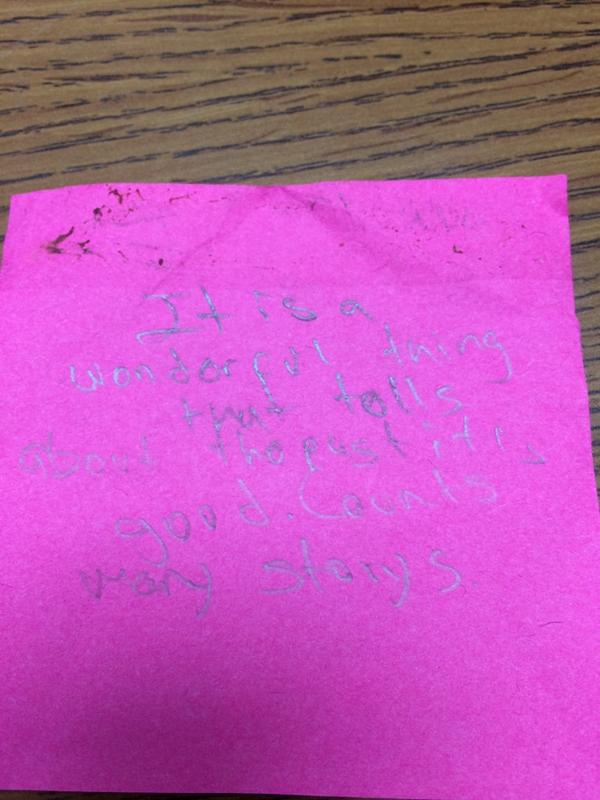 It is a
wonderful thing
that tells
about the past it is
good. Counts
many storys.